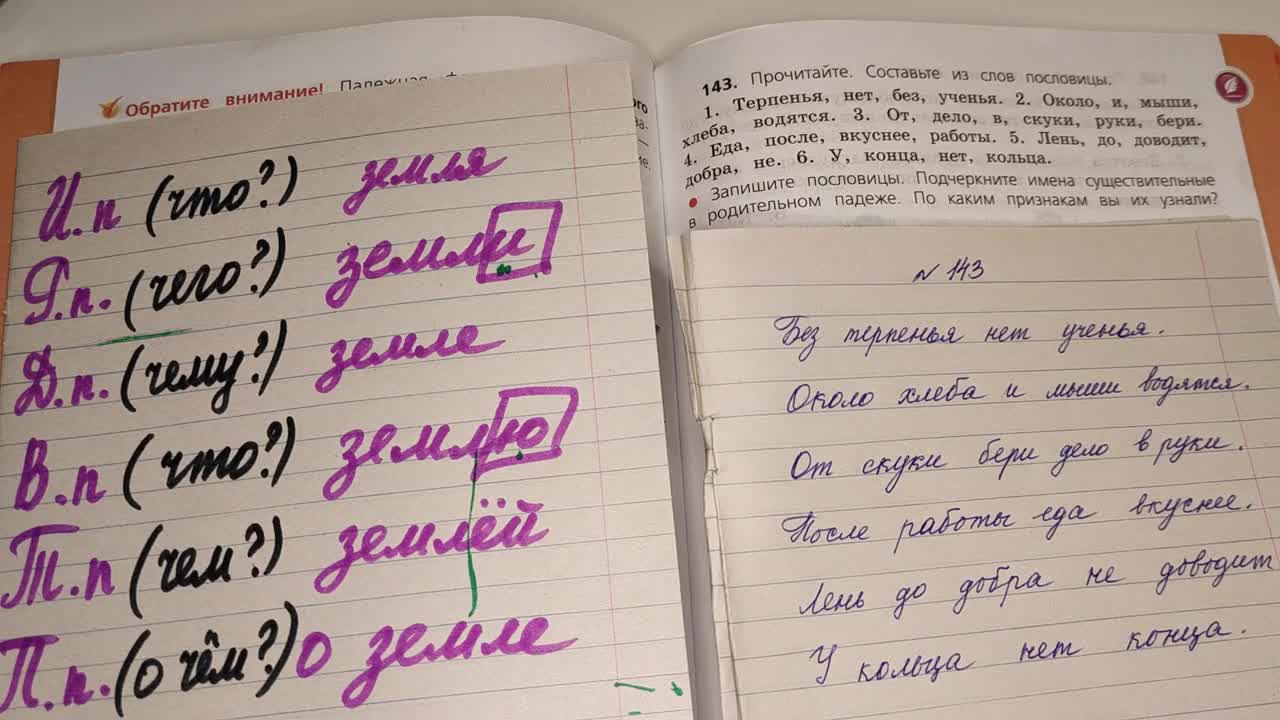 Обратите внимание! Падежная
И.п (что?) земля
Р.п. (чего?) земли
Д.п. (чему?) земле
В.п (что?) землю
Т.п (чем?) землёй
П.п. (о чём?) о земле
143. Прочитайте. Составьте из слов пословицы.
1. Терпенья, нет, без, ученья. 2. Около, и, мыши,
хлеба, водятся. 3. От, дело, в, скуки, руки, бери.
4. Еда, после, вкуснее, работы. 5. Лень, до, доводит,
добра, не. 6. У, конца, нет, кольца.
• Запишите пословицы. Подчеркните имена существительные
в родительном падеже. По каким признакам вы их узнали?
№ 143
Без терпенья нет ученья.
Около хлеба и мыши водятся.
От скуки бери дело в руки.
После работы еда вкуснее.
Лень до добра не доводит
У кольца нет конца.